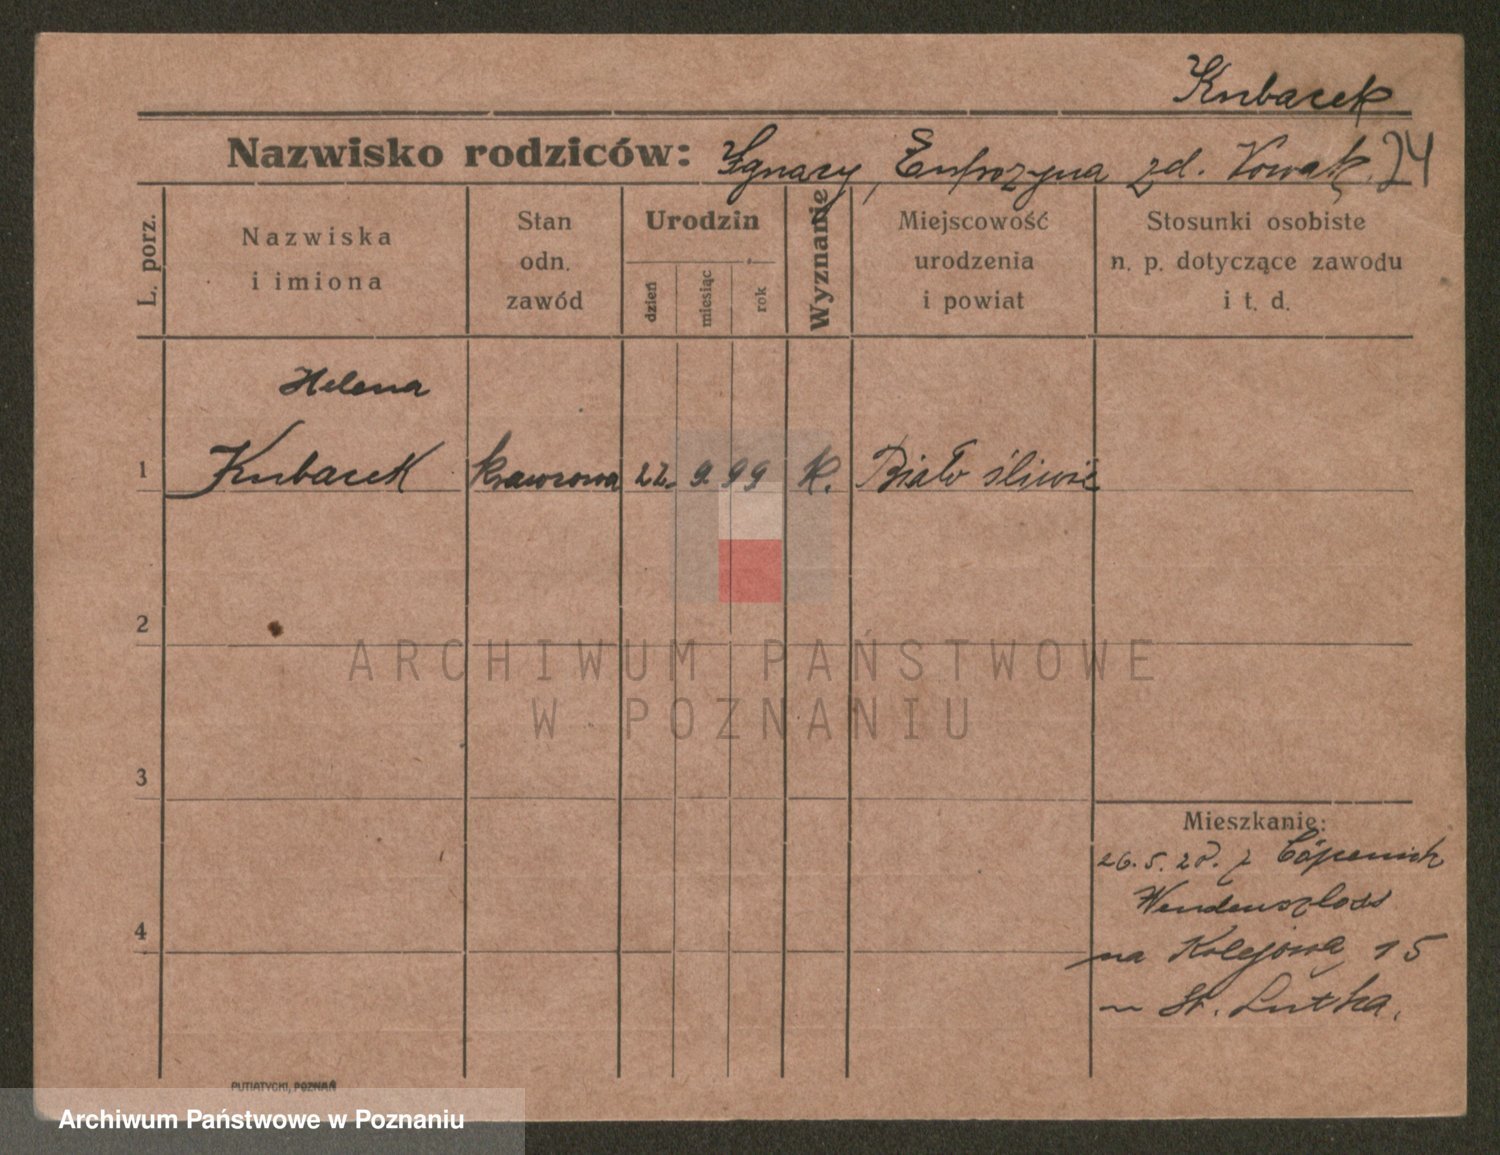 Kubacek
Nazwisko rodziców: Ignacy, Eufrozyna zd. Nowak. 24
L. porz.
Nazwiska
i imiona
Stan
odn.
zawód
Urodzin
dzień
miesiąc
rok
Wyznanie
Miejscowość
urodzenia
i powiat
Stosunki osobiste
n. p. dotyczące zawodu
i t. d.
Helena
1 Kubacek krawcowa 22. 9. 99 K. Biało śliwie
2
3
4
Mieszkanie:
26.5.20. z Cöpenick
na Kolejową 15
St. Lutka.
PUTIATYCKI, POZNAŃ
ARCHIWUM PAŃSTWOWE
W POZNANIU
Archiwum Państwowe w Poznaniu